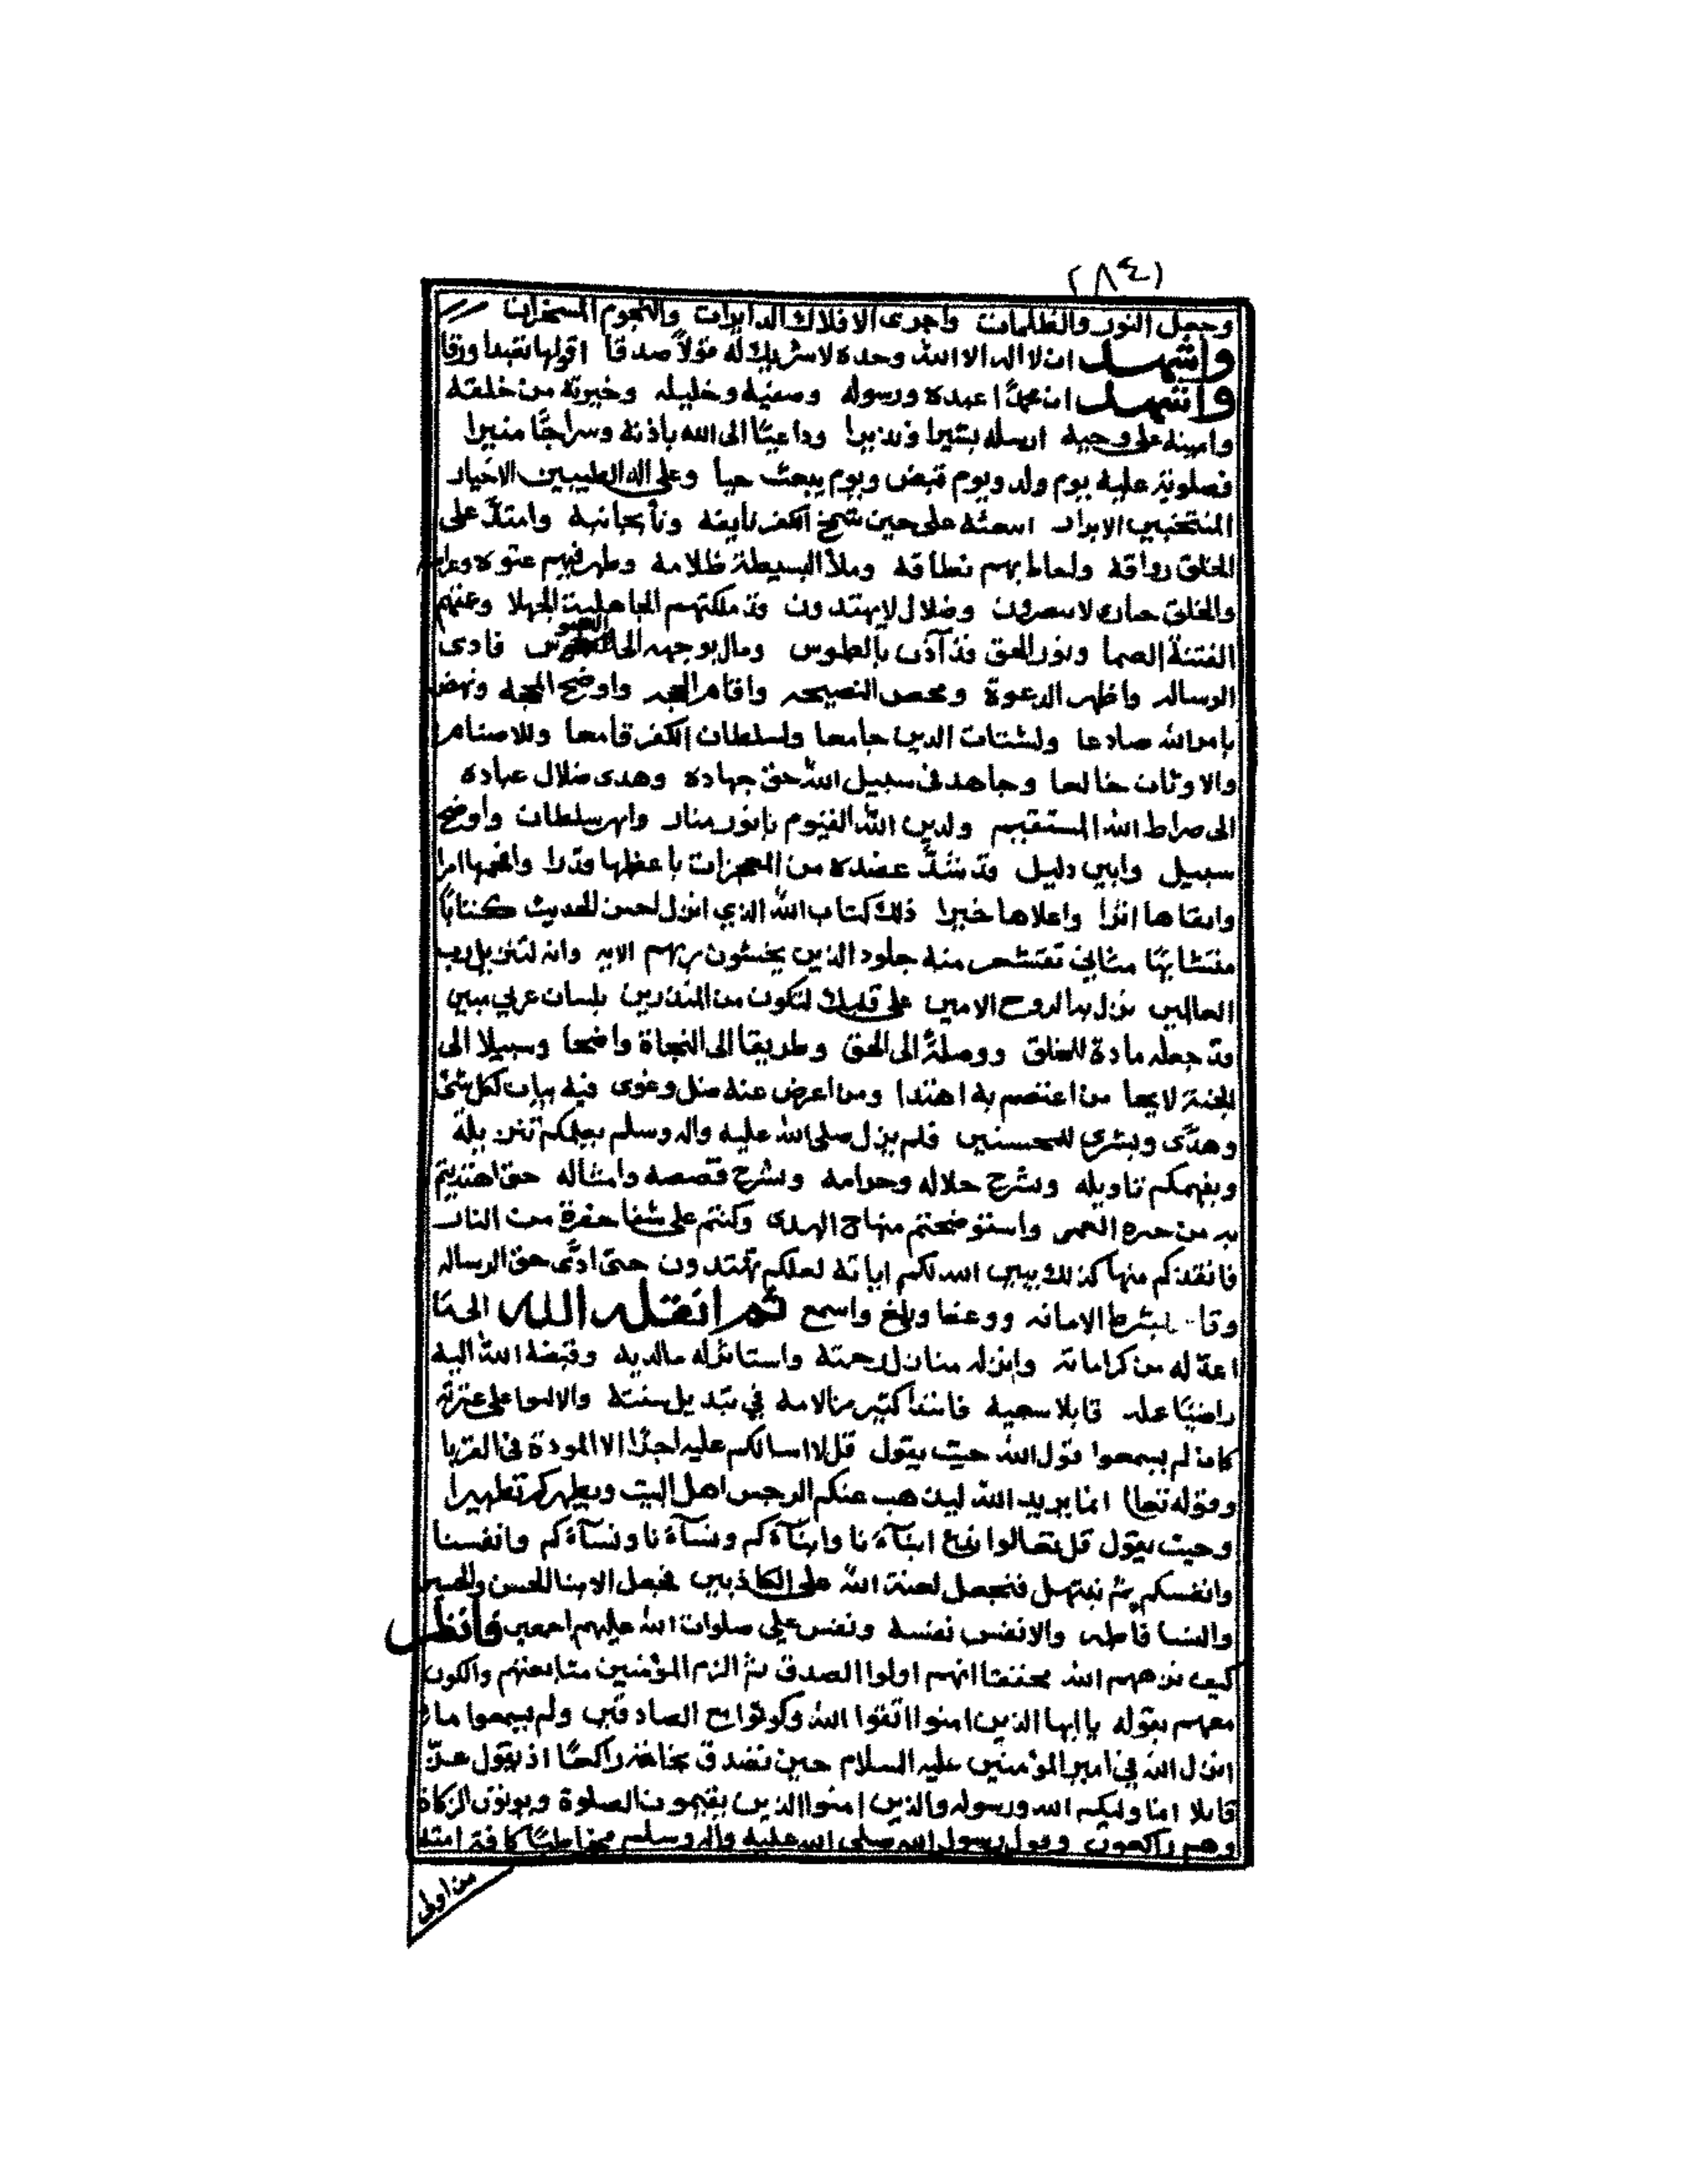 (٢٨٤)
وجعل النور والظلمات واجرى الافلاك الدايرات والنجوم المسخرات
واشهد ان لا اله الا الله وحده لا شريك له قولاً صدقا اقولها تعبدا ورقا
واشهد ان محمدًا عبده ورسوله وصفيه وخليله وخيرته من خلقه
وامينه على وحيه ارسله بشيرا ونذيرا وداعيًا الى الله باذنه وسراجًا منيرا
فصلوته عليه يوم ولد ويوم قبض ويوم يبعث حيا وعلى اله الطيبين الاخيار
المنتخبين الابرار ابتعثه على حين شمخ الكفر نايفه ونأ بجانبه وامتدّ على
الخلق رواقه واحاط بهم نطاقه وملأ البسيطة ظلامه وظهر فيهم عتوه
والخلق حيارى لا يبصرون وضلال لا يهتدون قد ملكتهم الجاهلية الجهلا وعمتهم
الفتنة الصما ونور الحق قد آذن بالطموس ومال بوجهه الى فادى
الرساله واظهر الدعوة ومحص النصيحه واقام الحجه واوضح المحجه ونهض
بامر الله صادعا ولشتات الدين جامعا ولسلطان الكفر قامعا وللاصنام
والاوثان خالعا وجاهد في سبيل الله حق جهاده وهدى ضلال عباده
الى صراط الله المستقيم ولدين الله القيوم بانور منار وابهر سلطان واوضح
سبيل وابين دليل قد شدّ عضده من المعجزات باعظمها قدرا وافخمها امرا
وابقاها اثرًا واعلاها خبرا ذلك كتاب الله الذي انزل احسن الحديث كتابًا
متشابهًا مثاني تقشعر منه جلود الذين يخشون ربهم الايه وانه لتنزيل رب
العالمين نزل به الروح الامين على قلبك لتكون من المنذرين بلسان عربي مبين
قد جعله مادة للخلق ووصلةً الى الحق وطريقا الى النجاة واضحا وسبيلا الى
الجنة لايحا من اعتصم به اهتدا ومن اعرض عنه ضل وغوى فيه بيان لكل شئ
وهدًى وبشرى للمحسنين فلم يزل صلى الله عليه واله وسلم يعلمكم تنزيله
ويفهمكم تاويله ويشرح حلاله وحرامه ويشرح قصصه وامثاله حتى اهتديتم
به من حيره العمى واستوضحتم منهاج الهدى وكنتم على شفا حفرة من النار
فانقذكم منها كذلك يبين الله لكم اياته لعلكم تهتدون حتى ادّى حق الرساله
وقا بشرط الامانه ووعضا وبلغ واسمع ثم انقله الله الى ما
اعدّ له من كراماته وانزله منازل رحمته واستاثر له مالديه وقبضه الله اليه
راضيًا عمله قابلا سعيه فانتدا كثير من الامه في تبديل سنته والالبوا على عترته
كان لم يسمعوا قول الله حيث يقول قل لا اسالكم عليه اجرًا الا المودة في القربا
وقوله تعالى انما يريد الله ليذهب عنكم الرجس اهل البيت ويطهركم تطهيرا
وحيث يقول قل تعالوا ندع ابنآءنا وابنآءكم ونسآءنا ونسآءكم وانفسنا
وانفسكم ثم نبتهل فنجعل لعنة الله على الكاذبين فجعل الابنا الحسن والحسين
والنسا فاطمه والانفس نفسه ونفس علي صلوات الله عليهم اجمعين فانظر
كيف نزههم الله محققا انهم اولوا الصدق ثم الزم المؤمنين متابعتهم والكون
معهم بقوله يا ايها الذين امنوا اتقوا الله وكونوا مع الصادقين ولم يسمعوا ما
انزل الله في امير المؤمنين عليه السلام حين تصدق بخاتمه راكعًا اذ يقول عزّ
قايلا انما وليكم الله ورسوله والذين امنوا الذين يقيمون الصلوة ويوتون الزكاة
وهم راكعون وقول رسول الله صلى الله عليه واله وسلم مخاطبًا كافة امته
من اولى